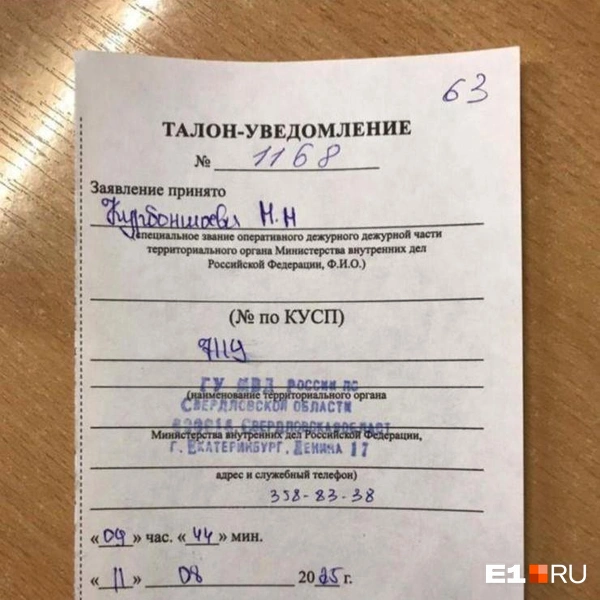 63
ТАЛОН-УВЕДОМЛЕНИЕ
№ 1168
Заявление принято
Н.Н
(специальное звание оперативного дежурного дежурной части
территориального органа Министерства внутренних дел
Российской Федерации, Ф.И.О.)
(№ по КУСП)
ГУ МВД РОССИИ ПО
(наименование территориального органа
СВЕРДЛОВСКОЙ ОБЛАСТИ
Министерства внутренних дел Российской Федерации,
Г. ЕКАТЕРИНБУРГ, ЛЕНИНА 17
адрес и служебный телефон)
358-83-38
«09» час. «44» мин.
«11» 08 2025 г.
E1.RU